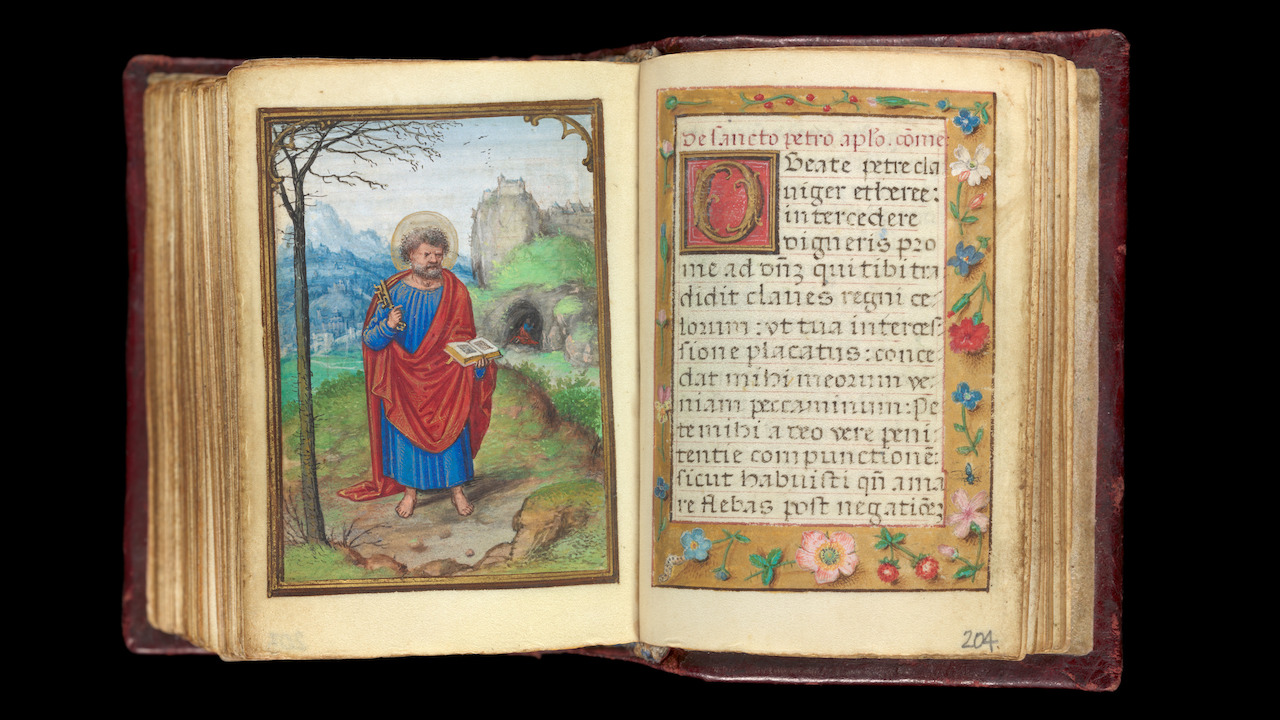 De sancto petro aplo. cōme
O Beate petre cla
uiger etheree:
intercedere
digneris pro
me ad dn̄ʒ qui tibi tra
didit claues regni ce-
lorum: vt tua interces-
sione placatus: conce-
dat mihi meorum ve-
niam peccaminum: Pe
te mihi a deo vere peni-
tentie compunctionē:
sicut habuisti qn̄ ama
re flebas post negatiōeʒ
204.